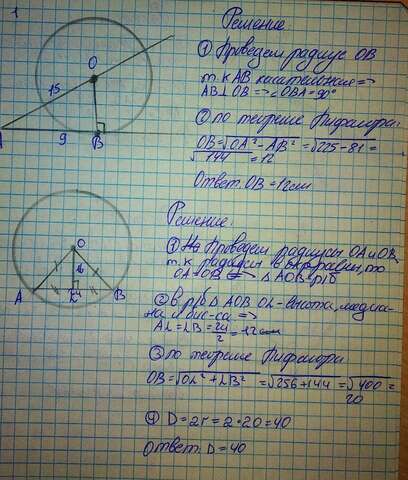 1
Решение.
① Проведем радиус OB
т.к AB касательная =>
AB⊥OB => ∠OBA=90°
② по теореме Пифагора:
OB=√OA²-AB² = √225-81 =
√144 = 12
Ответ: OB = 12см
O
15
A
9
B
Решение.
① Проведем радиусы OA и OB,
т.к радиусы в окр равны, то
OA=OB => Δ AOB-р/б
② в р/б Δ AOB OL-высота, медиа-
на и бис-са =>
AL=LB=24/2=12см
③ по теореме Пифагора
OB=√OL²+LB² = √256+144 = √400 =
20
④ D=2r=2·20=40
Ответ: D=40
O
16
A
B
L
24